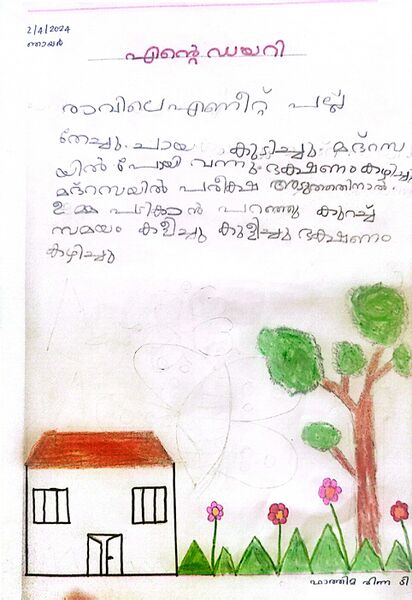 2/4/2024
ഞായർ
എന്റെ ഡയറി
രാവിലെ എണീറ്റ് പല്ല്
തേച്ചു. ചായ കുടിച്ചു. മദ്റസ
യിൽ പോയി വന്നു. ഭക്ഷണം കഴിച്ചു
മദ്റസയിൽ പരീക്ഷ അടുത്തതിനാൽ.
ഉമ്മ പഠിക്കാൻ പറഞ്ഞു കുറച്ച്
സമയം കളിച്ചു കുളിച്ചു ഭക്ഷണം
കഴിച്ചു
ഫാത്തിമ ഹിന്ന ടി